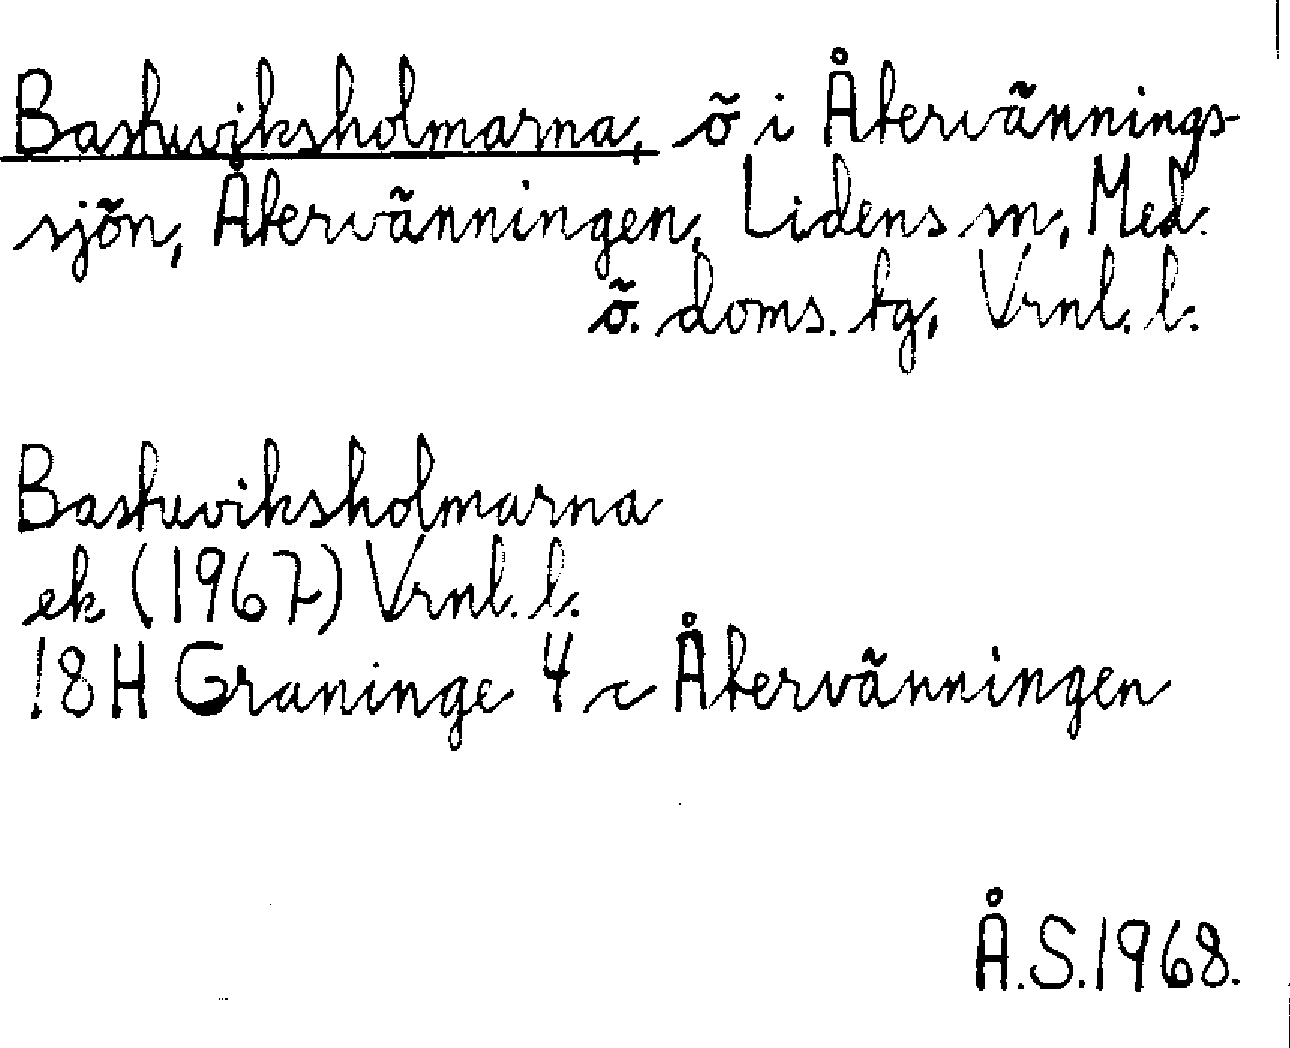 Bastuviksholmarna, ö i Återvännings-
sjön, Återvänningen, Lidens sn, Med.
ö. doms. tg, Vrnl. l.
Bastuviksholmarna
ek (1967) Vrnl. l.
18H Graninge 4 c Återvänningen
Å.S.1968.